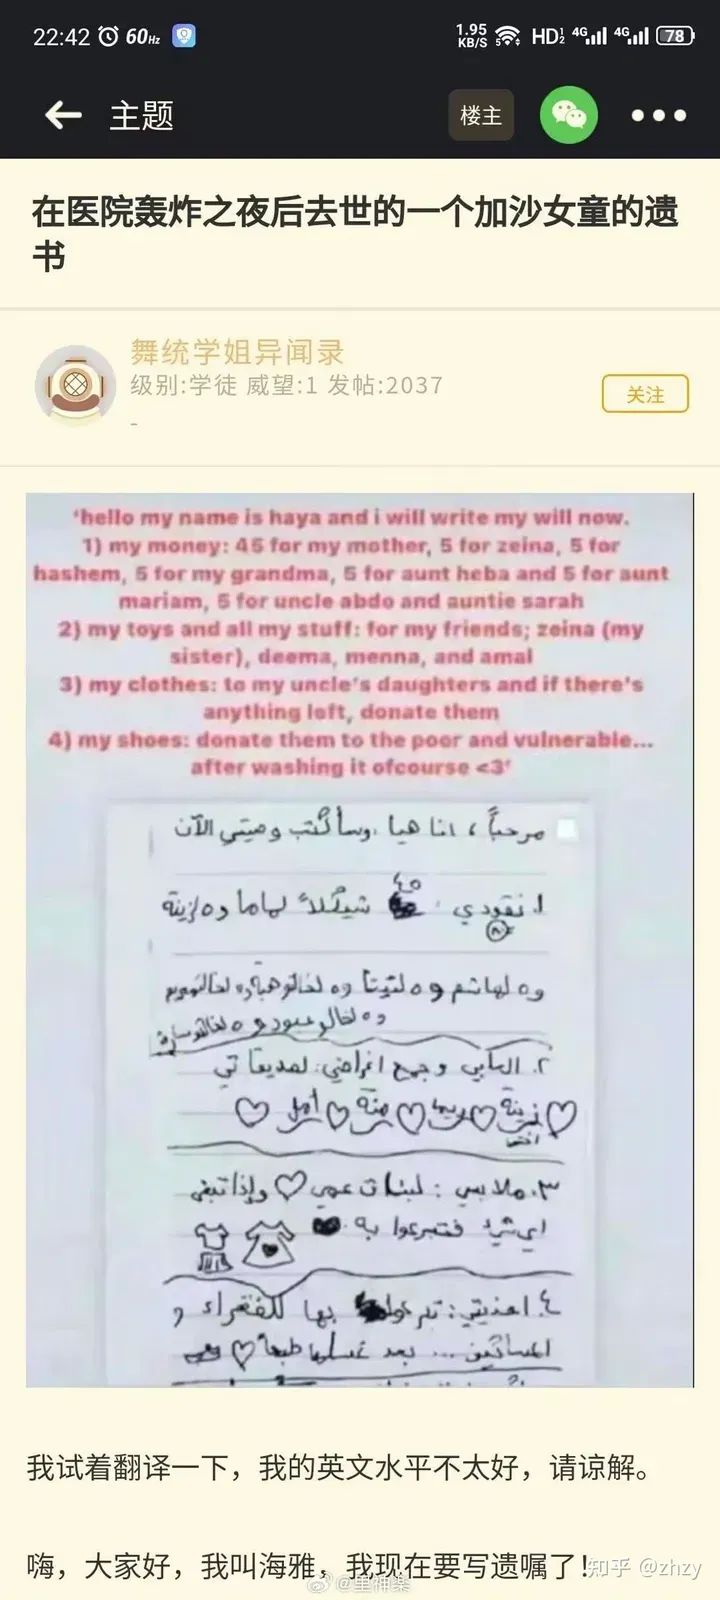 22:42 60Hz 1.95 KB/S 5 HD 1 2 4G 4G 78
主题 楼主
在医院轰炸之夜后去世的一个加沙女童的遗
书
舞统学姐异闻录
级别:学徒 威望:1 发帖:2037
关注
-
'hello my name is haya and i will write my will now.
1) my money: 45 for my mother, 5 for zeina, 5 for
hashem, 5 for my grandma, 5 for aunt heba and 5 for aunt
mariam, 5 for uncle abdo and auntie sarah
2) my toys and all my stuff: for my friends; zeina (my
sister), deema, menna, and amal
3) my clothes: to my uncle's daughters and if there's
anything left, donate them
4) my shoes: donate them to the poor and vulnerable...
after washing it ofcourse <3'
مرحباً، انا هيا، وسأكتب وصيتي الآن
١. نقودي: ٤٥ شيكلاً لماما و٥ لزينة
و٥ لهاشم و٥ لتيتا و٥ لخالتو هبة و٥ لخالتو مريم
و٥ لخالو عبود و٥ لخالتو سارة
٢. العابي وجميع اغراضي: لصديقاتي
زينة ديما منة أمل
اختي
٣. ملابسي: لبنات عمي وإذا تبقى
اي شيء فتبرعوا به
٤. احذيتي: تبرعوا بها للفقراء و
المساكين... بعد غسلها طبعاً
我试着翻译一下，我的英文水平不太好，请谅解。
嗨，大家好，我叫海雅，我现在要写遗嘱了！
知乎 @zhzy